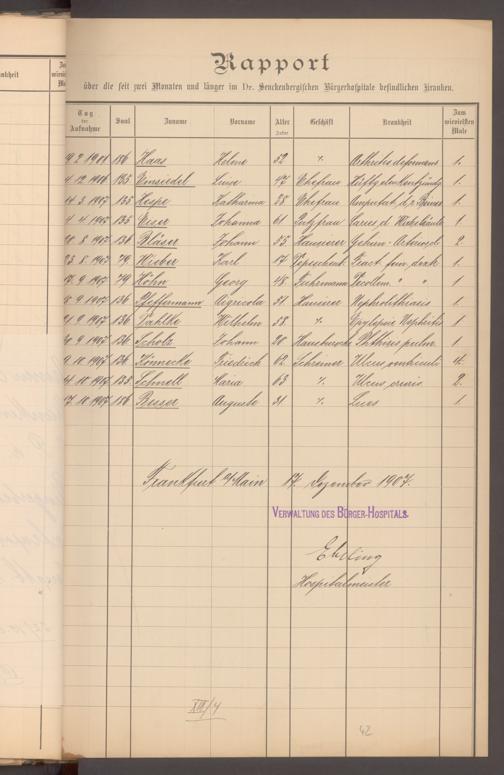 Rapport
über die seit zwei Monaten und länger im Dr. Senckenbergischen Bürgerhospitale befindlichen Kranken.
Tag der Aufnahme Saal Zuname Vorname Alter Jahre Geschäft Krankheit Zum wievielsten Male
9 2 1901 136 Haas Helene 52 % Arthritis deformans 1.
4 12 1906 135 Einsiedel 47 Ehefrau 1
4 3 1907 135 Hospe Katharina 28 Ehefrau Amputat. d. r. 1
4 4 1907 135 Eiser Johanna 61 Putzfrau Caries d. Wirbelsäule 1
8 1907 131 Bläser Johann 55 Hausierer 2
8 1907 79 Wieber Karl 17 Fract. fem. 1
9 1907 79 Höhn Georg 48 Fuhrmann " " 1
9 1907 136 Pfeffermann 31 Hausierer Nephrolithiasis 1
9 1907 136 Pahlke Wilhelm 38 % Epylepsie Nephritis 1
9 1907 136 Scholz Johann 20 Hausbursche Phthisis pulm. 1
9 10 1907 136 Könnecke Friedrich 62 Schreiner Ulcus 4.
10 1907 138 Schnell Maria 63 % Ulcus cruris 2.
7 10 1907 136 Resser Auguste 31 % Lues 1
Frankfurt a/Main 17. Dezember 1907.
VERWALTUNG DES BÜRGER-HOSPITALS.
Ebeling
Hospitalmeister
XIII/4
42
ankheit